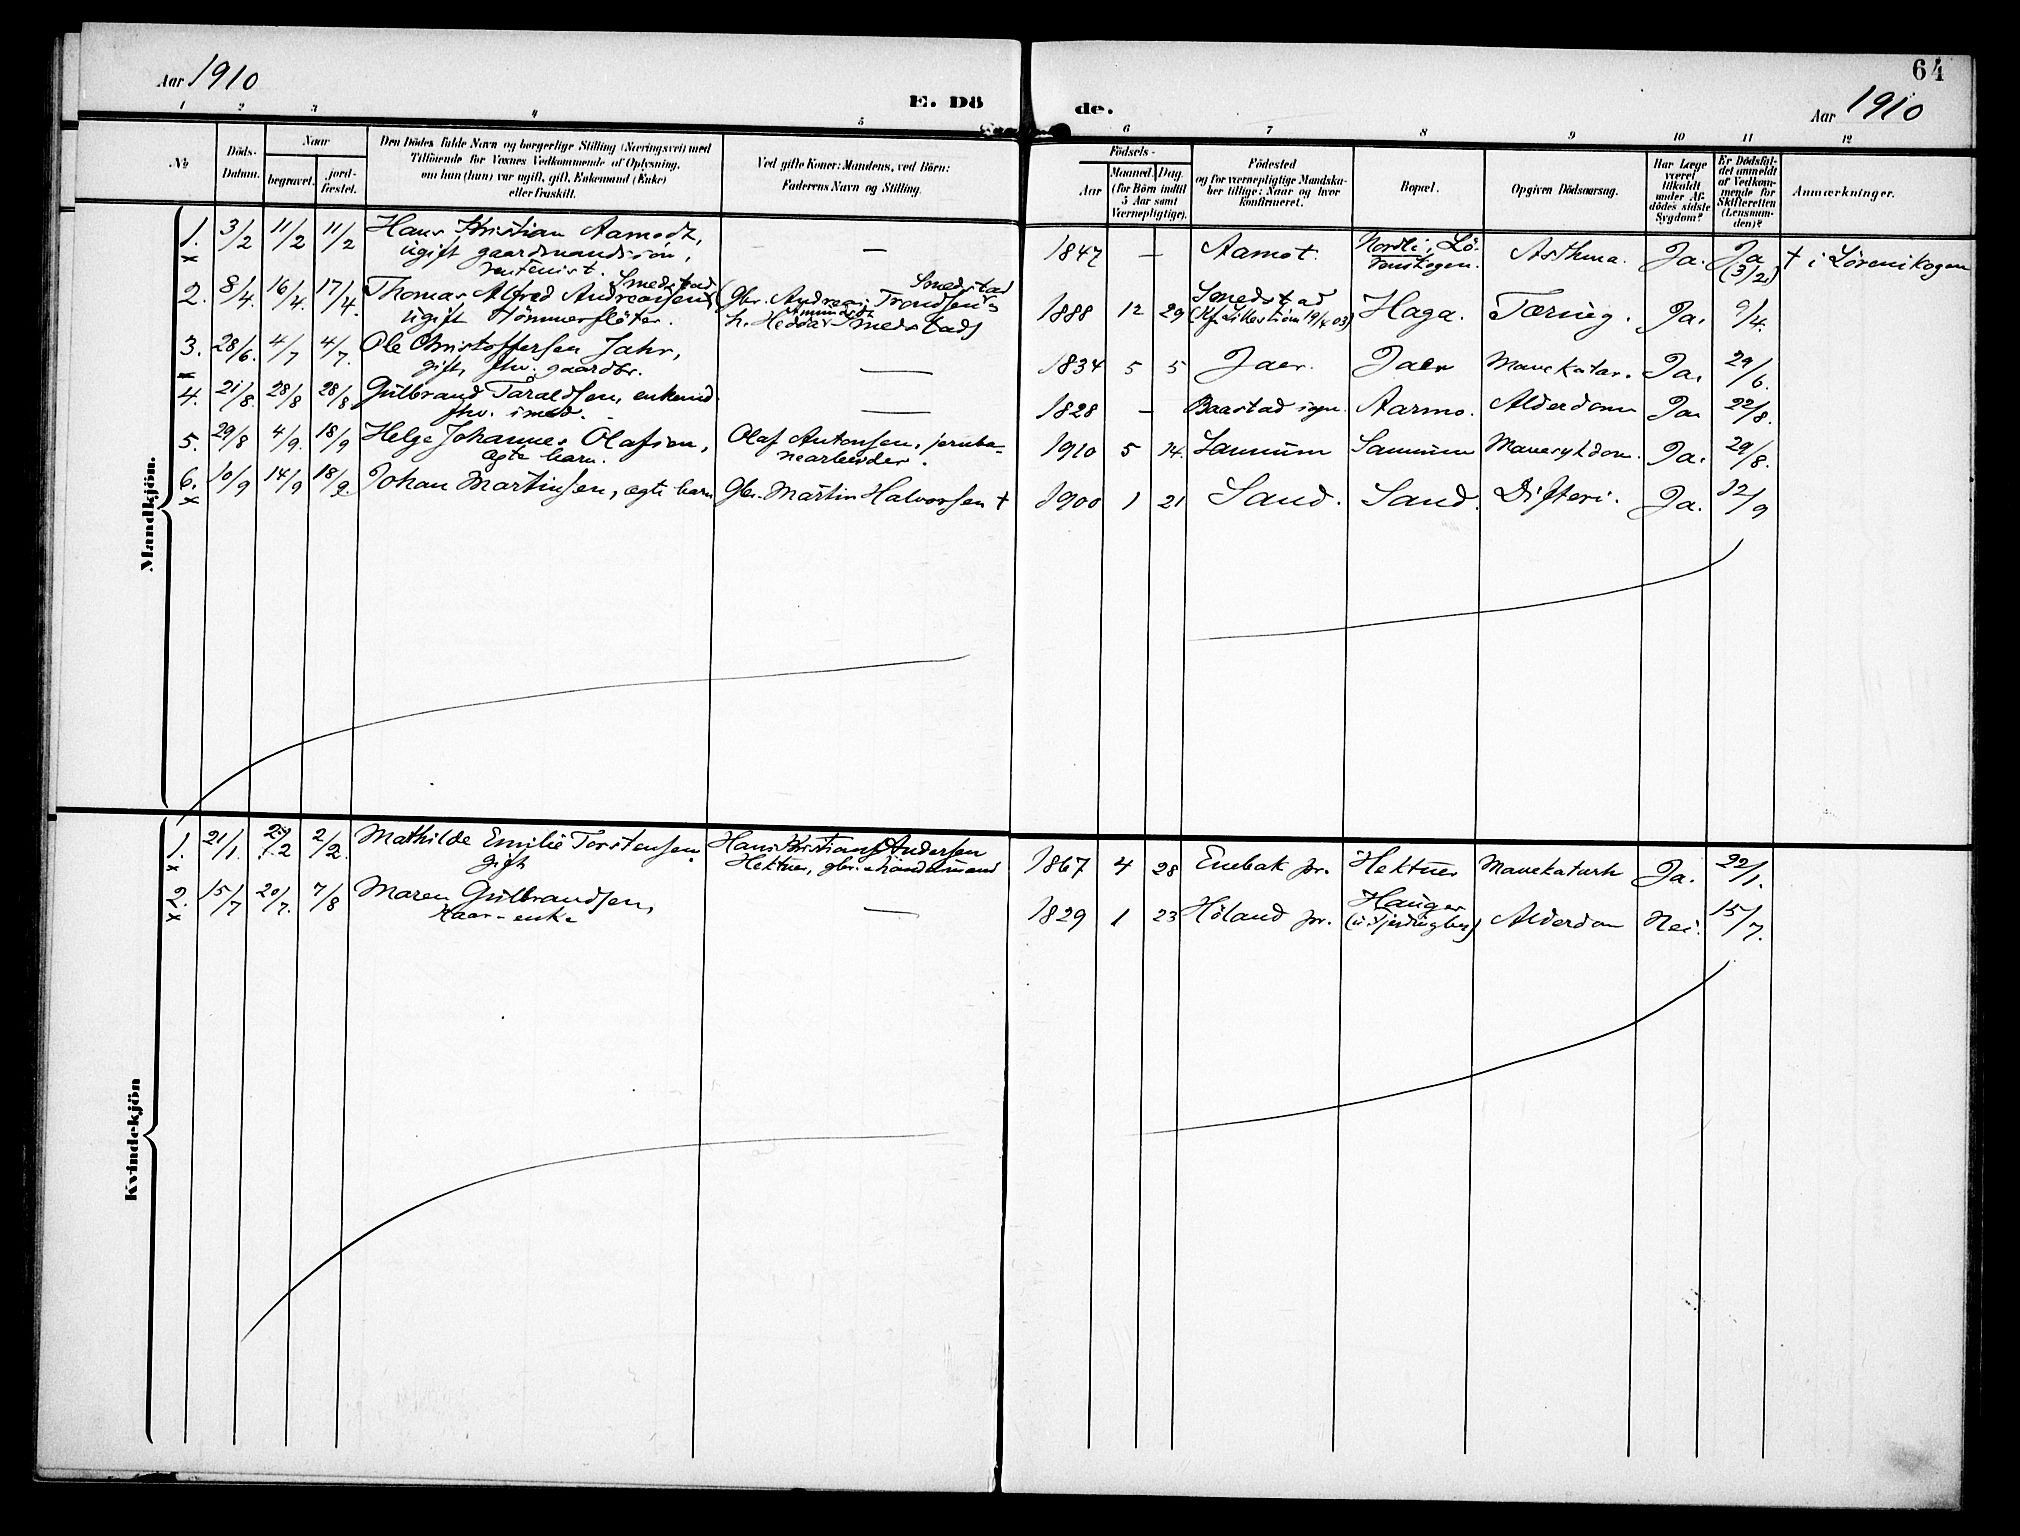 64
Aar 1910
E. Dö de.
Aar 1910
1 2 3 4 5 6 7 8 9 10 11 12
№
Döds-Datum.
Naar
begravet.
jord-fæstet.
Den Dödes fulde Navn og borgerlige Stilling (Næringsvei) med
Tilföiende for Voxnes Vedkommende af Oplysning,
om han (hun) var ugift, gift, Enkemand (Enke)
eller fraskilt.
Ved gifte Koner: Mandens, ved Börn:
Faderens Navn og Stilling.
Födsels-
Aar
Maaned. Dag.
(for Börn indtil
5 Aar samt
Værnepligtige).
Födested
og for værnepligtige Mandska-
ber tillige: Naar og hvor
konfirmeret.
Bopæl.
Opgiven Dödsaarsag.
Har Læge
været
tilkaldt
under Af-
dödes sidste
Sygdom?
Er Dödsfal-
det anmeldt
af Vedkom-
mende for
Skifteretten
(Lensman-
den)?
Anmærkninger.
Mandkjön.
1. 3/2 11/2 11/2 Hans Kristian Aamodt, — 1847 — Aamot. Nordli, Lö- Asthma. Ja. Ja † i Lörenskogen
ugift gaardmandssön, renskogen. (3/2)
rentenist.
2. 8/4. 16/4. 17/4. Thomas Alfred Andreassen Smedstad Gbr. Andreas Trondsen Smedstad 1888 12 29 Smedstad Haga. Tæring. Ja. 9/4.
ugift Tömmerflöter. h. Hedda Smedstads (Kf. Lilleström 19/4 03)
3. 28/6. 4/7 4/7. Ole Christoffersen Jahr, — 1834 5 5 Jaer. Jaer Mavekatar. Ja. 29/6.
gift, fhv. gaardbr.
4. 21/8. 28/8 28/8 Gulbrand Taraldsen, enkemd. — 1828 — Baastad sgn. Aarmo. Alderdom Ja. 22/8.
fhv. smed.
5. 29/8 4/9. 18/9 Helge Johannes Olafsen, Olaf Antonsen, jernba- 1910 5 14. Sannum Sannum Mavesykdom. Ja. 29/8.
ægte barn. nearbeider.
6. 10/9 14/9 18/9. Johan Martinsen, ægte barn Gbr. Martin Halvorsen † 1900 1 21 Sand. Sand. Difteri. Ja. 12/9
Kvindekjön
1. 21/1. 2/2 2/2. Mathilde Emilie Torstensen, Hans Kristian Andersen 1867 4 28 Enebak pr. Hektner Mavekatarh Ja. 22/1.
gift Hektner, gbr.
2. 15/7 20/7. 7/8 Maren Gulbrandsen, — 1829 1 23 Höland pr. Hauger Alderdom Nei. 15/7.
Kaar-enke